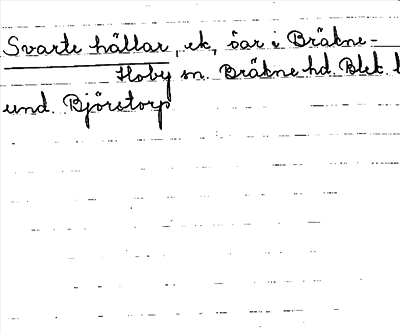 Svarte hällar, ek, öar i Bräkne-
Hoby sn. Bräkne hd. Blek. l
und. Björstorp